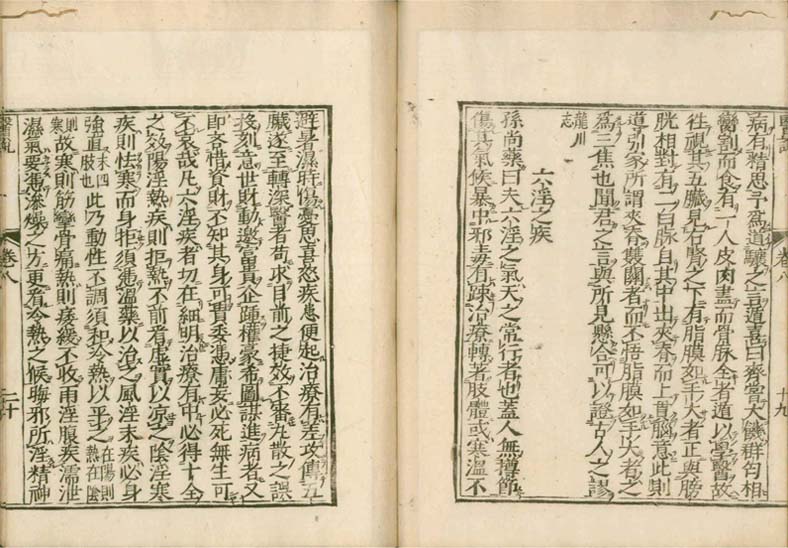 病有精思予爲道驤之言遁喜曰齊嘗大饑群匄相
臠割而食有一人皮肉盡而骨脉全者遁以學醫故
往視其五臟見右腎之下有脂膜如手大者正與膀
胱相對有二白脉自其中出夾脊而上貫腦意此則
導引家所謂夾脊雙關者而不悟脂膜如手大者之
爲三焦也聞君之言與所見懸合可以證古人之謬
龍川
志
六淫之疾
孫尚藥曰夫六淫之氣天之常行者也蓋人無撙節
傷其氣候暴中邪毒有疎治療轉著肢體或寒溫不
卷八
十九
避暑濕時傷憂思喜怒疾患便起治療有差攻傳五
臟遂至轉深醫者苟求目前之捷效不審丸散之誤
投刻意世財動邀富貴企踵權豪希圖謀進病者又
即吝惜資財不知其身可貴委憑庸妄必死無生可
不哀哉凡六淫疾者切在細明治療有中必得十全
之效陽淫熱疾則拒熱不前者虛實以凉之陰淫寒
疾則怯寒而身拒須憑溫藥以治之風淫末疾必身
強直末四肢也此乃動性不調須和冷熱以平之在陽則熱在陰
則寒故寒則筋攣骨痛熱則痿緩不收雨淫腹疾濡泄
濕氣要憑滲燥之方更看冷熱之候晦邪所淫精神
卷八
二十